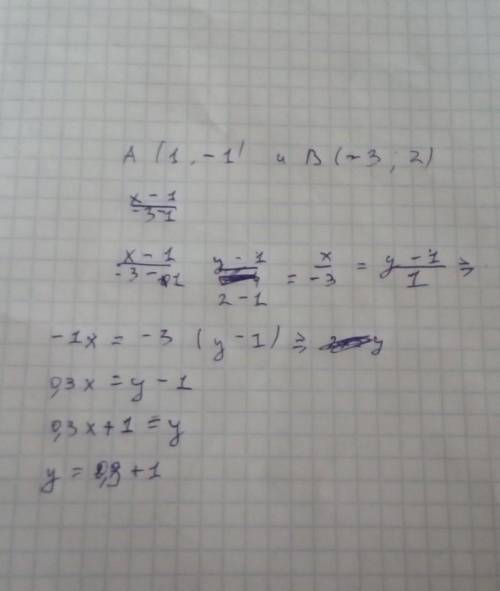 A (1, -1) и B (-3; 2)
x - 1 / -3-1
x - 1 / -3 - 1 y - 1 / 2 - 1 = x / -3 = y - 1 / 1 ⇒
-1x = -3 (y - 1) ⇒ y
0,3x = y - 1
0,3x + 1 = y
y = 0,3 + 1